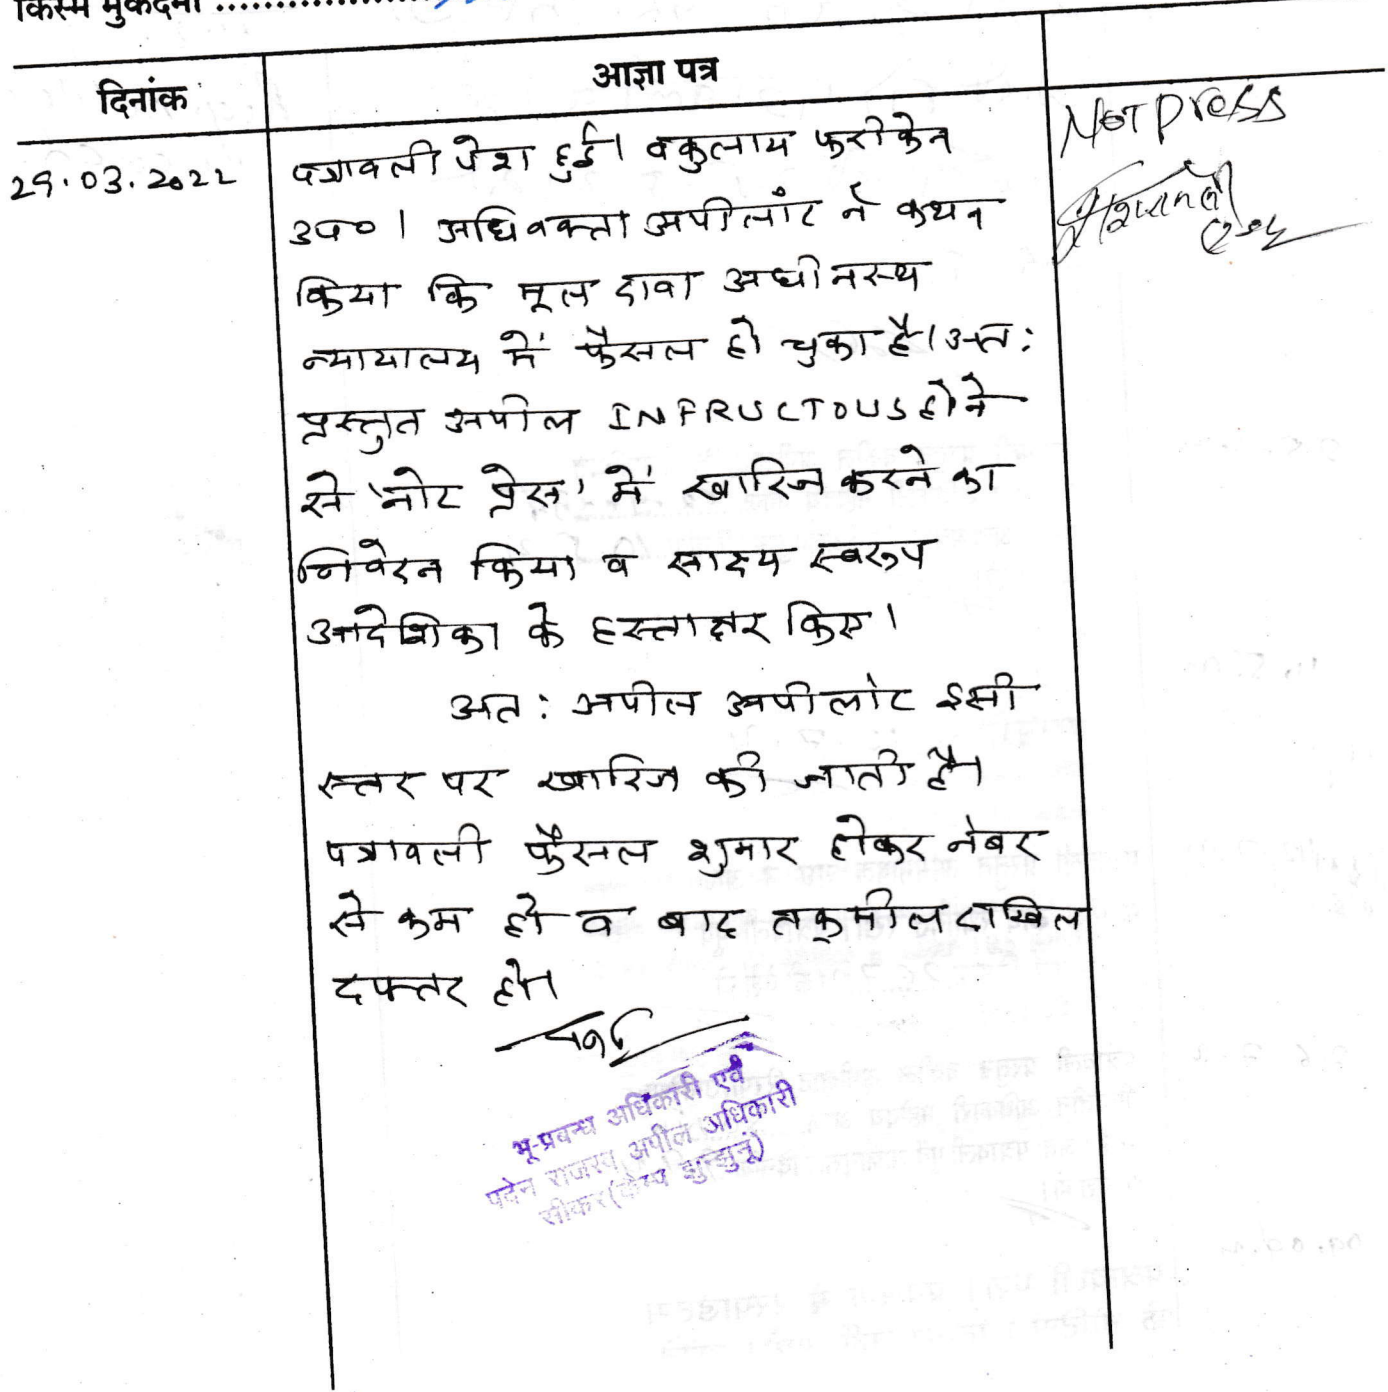 किस्म मुकदमा ....................
दिनांक
आज्ञा पत्र
29.03.2022
पत्रावली पेश हुई। वकुलाय फरीकेन
उप०। अधिवक्ता अपीलांट ने कथन
किया कि मूल दावा अधीनस्थ
न्यायालय में फैसल हो चुका है। अत:
प्रस्तुत अपील INFRUCTOUS होने
से 'नोट प्रेस' में खारिज करने का
निवेदन किया व साक्ष्य स्वरूप
आदेशिका के हस्ताक्षर किए।
अत: अपील अपीलांट इसी
स्तर पर खारिज की जाती है।
पत्रावली फैसल शुमार होकर नंबर
से कम हो व बाद तकमील दाखिल
दफ्तर हो।
भू-प्रबन्ध अधिकारी एवं
पदेन राजस्व अपील अधिकारी
सीकर (कैम्प झुन्झुनूं)
Not press